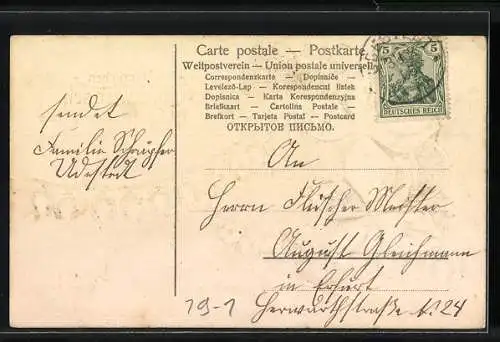 Carte postale — Postkarte
Weltpostverein — Union postale universelle
Correspondenzkarte — Dopisnice
Levelező-Lap — Korespondencai listek
Dopisnica — Karta Korespondencyjna
Briefkaart — Cartolina Postale
Brefkort — Tarjeta Postal — Postcard
ОТКРЫТОЕ ПИСЬМО.
5 5
DEUTSCHES REICH
sendet
Familie
Udestedt
An
Herrn Fleischer Meister
August Gleichmann
in Erfurt
Herwarthstraße N. 24
19-1